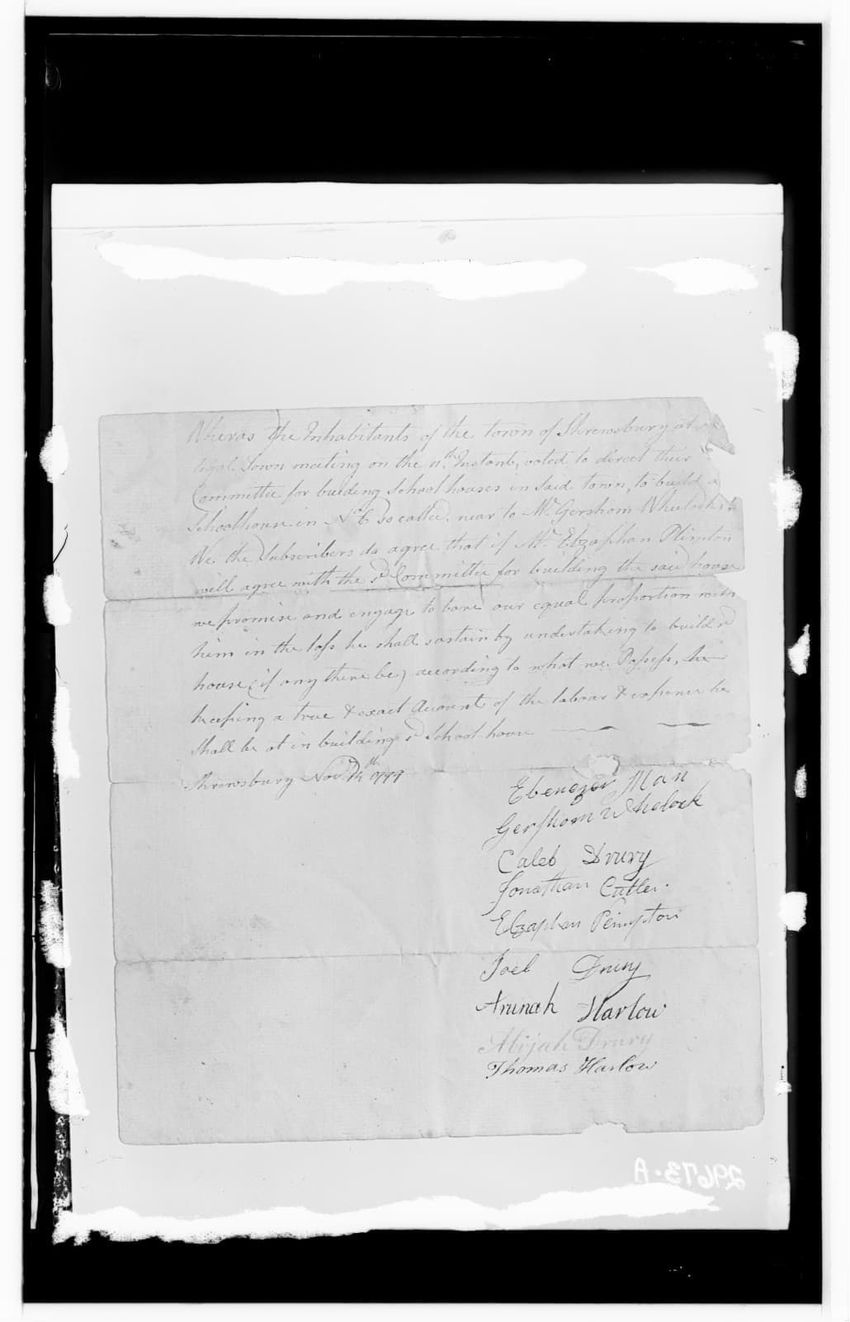 Wheras the Inhabitants of the town of Shrewsbury at a
legal Town meeting on the 11th Instant, voted to direct their
Committee for building School houses in Said town, to build a
Schoolhouse in so called, near to Mr. Gershom Wheelock's &
We the Subscribers do agree that if Mr. Elzaphan Plimpton
will agree with the sd Committee for building the said house
we promise and engage to bare our equal proportion with
him in the loss he shall sustain by undertaking to build sd
house, (if any there be) according to what we Possess, he
keeping a true & exact Account of the labour & expence he
shall be at in building sd School-house
Shrewsbury Novr
Ebenezer Man
Gershom Whelock
Caleb Drury
Jonathan Cutler.
Elzaphan Plimpton
Joel Drury
Arunah Harlow
Abijah Drury
Thomas Harlow
29673·A